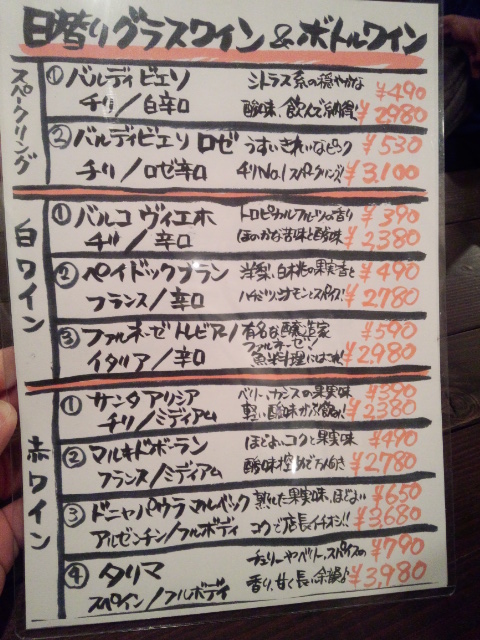 日替りグラスワイン&ボトルワイン
スパークリング
① バルディビエソ シトラス系の穏やかな ¥490
チリ/白辛口 酸味、飲んで納得! ¥2980
② バルディビエソ ロゼ うすいきれいなピンク ¥530
チリ/ロゼ辛口 チリNo.1スパークリング! ¥3,100
白ワイン
① バルコ ヴィエホ トロピカルフルーツの香り ¥390
チリ/辛口 ほのかな苦味と酸味 ¥2380
② ペイドックブラン 洋梨、白桃の果実香と ¥490
フランス/辛口 ハーブ、シナモンとスパイス ¥2780
③ ファルネーゼトレビアーノ 有名な醸造家 ¥590
ファルネーゼ!
イタリア/辛口 魚料理にはコレ! ¥2,980
赤ワイン
① サンタ アリシア ベリー、カシスの果実味 ¥390
チリ/ミディアム 軽い酸味 ¥2380
② マルキドボーラン ほどよいコクと果実味 ¥490
フランス/ミディアム 酸味控えめで万人向き ¥2,780
③ ドニャパウラ マルベック 熟した果実味、ほどよい ¥650
アルゼンチン/フルボディ コクで店長イチオシ!! ¥3,680
④ タリマ チェリーやベリー、スパイスの ¥790
スペイン/フルボディ 香り、甘く長い余韻♪ ¥3,980